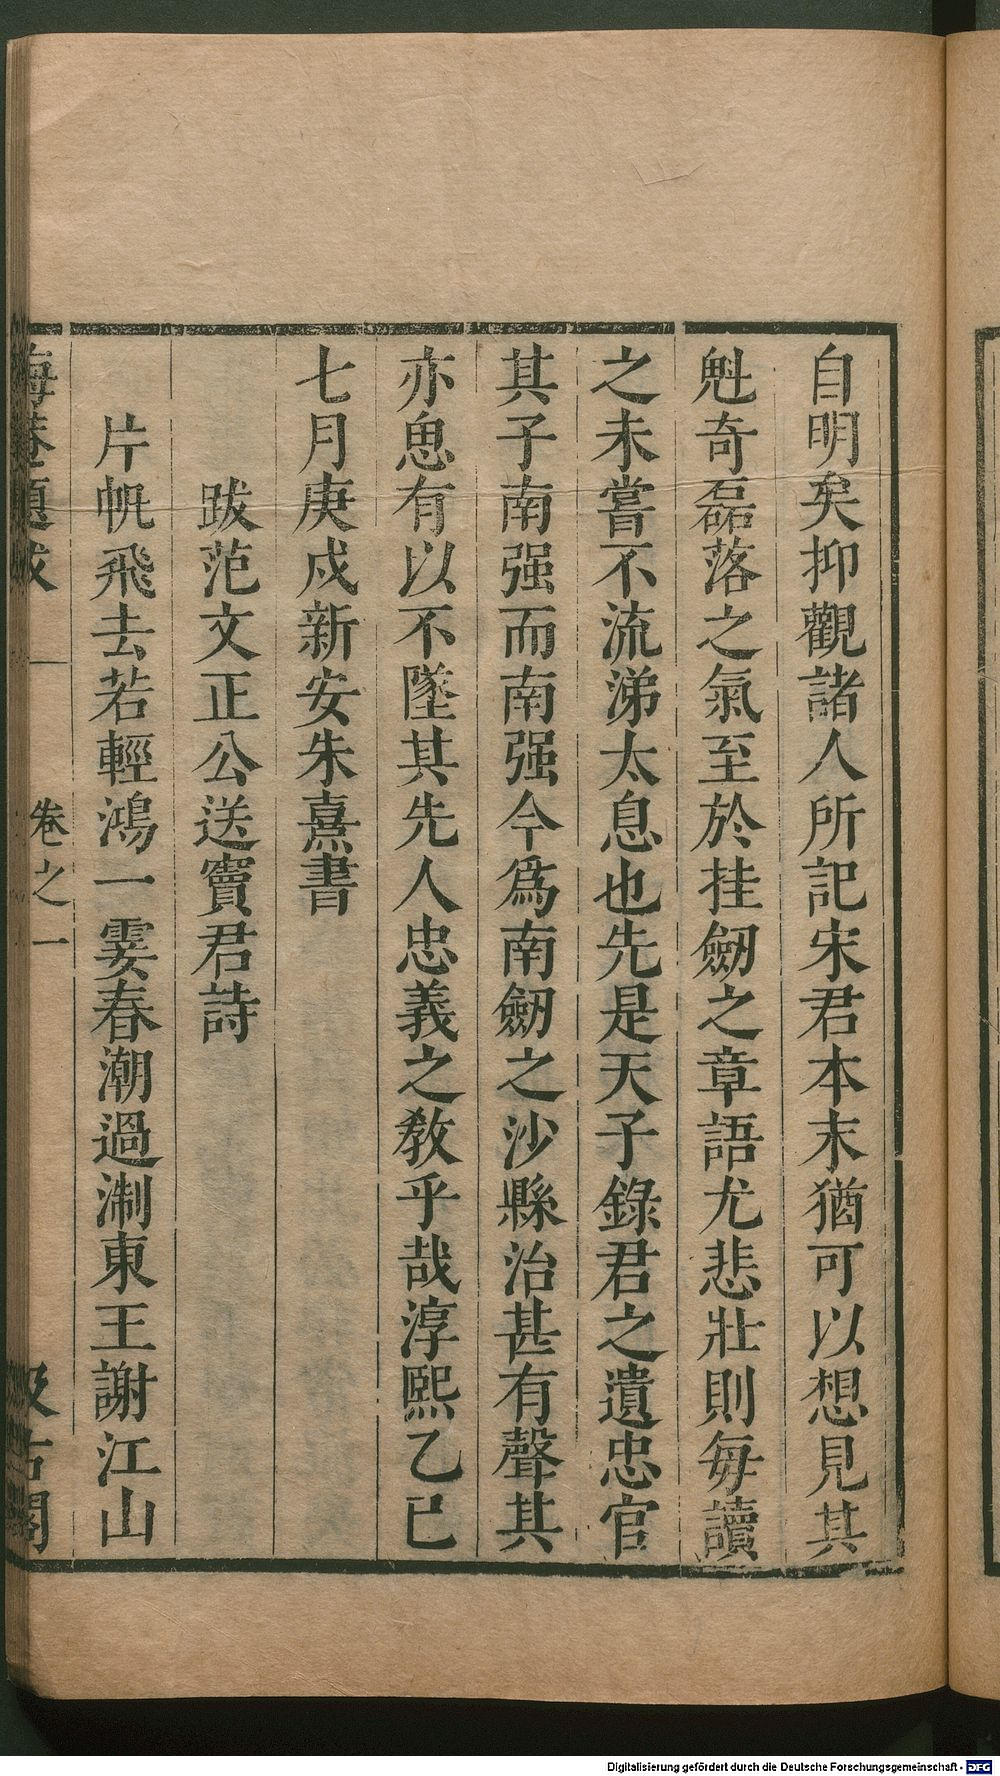 自明矣抑觀諸人所記宋君本末猶可以想見其
魁奇磊落之氣至於挂劒之章語尤悲壯則每讀
之未嘗不流涕太息也先是天子錄君之遺忠官
其子南强而南强今爲南劒之沙縣治甚有聲其
亦思有以不墜其先人忠義之敎乎哉淳熙乙巳
七月庚戌新安朱熹書
跋范文正公送竇君詩
片帆飛去若輕鴻一霎春潮過淛東王謝江山
晦菴題跋 卷之一 汲古閣
Digitalisierung gefördert durch die Deutsche Forschungsgemeinschaft - DFG